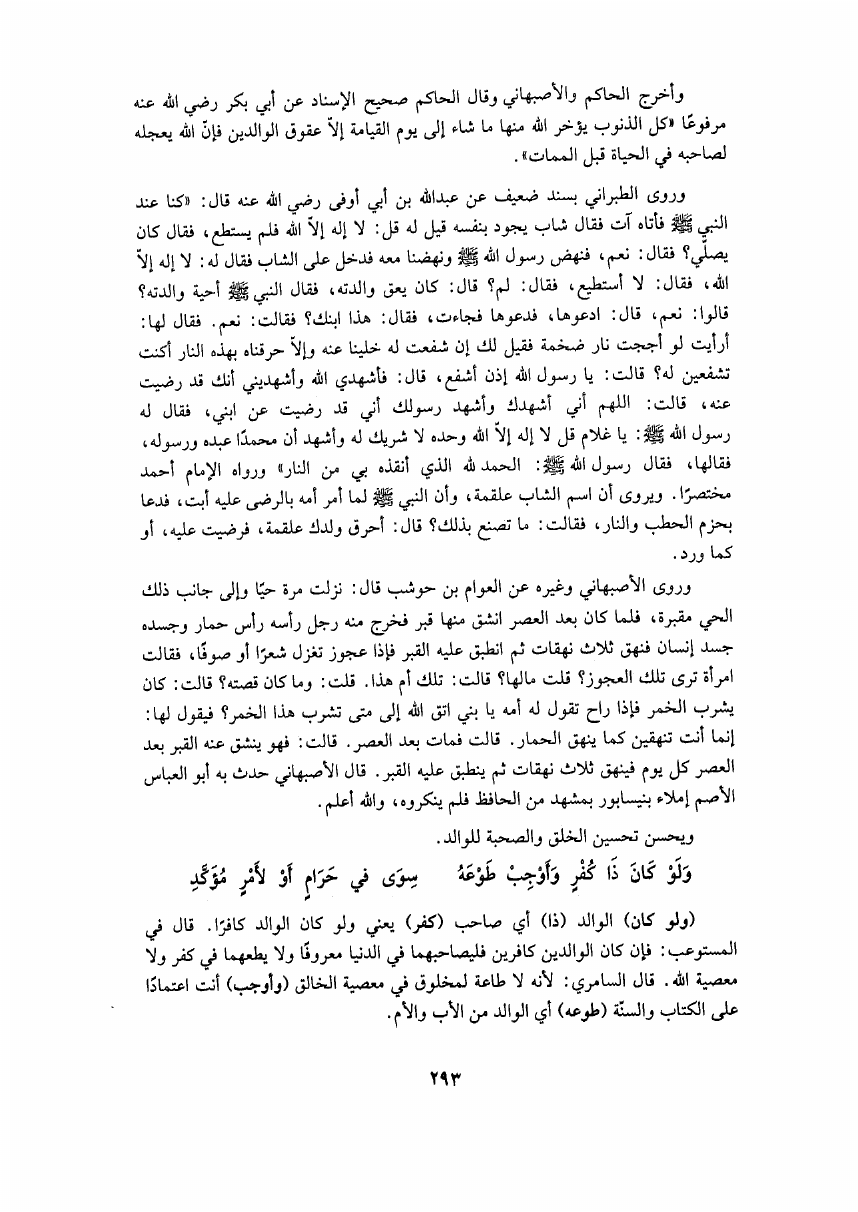 وأخرج الحاكم والأصبهاني وقال الحاكم صحيح الإسناد عن أبي بكر رضي الله عنه
مرفوعًا «كل الذنوب يؤخر الله منها ما شاء إلى يوم القيامة إلاّ عقوق الوالدين فإنّ الله يعجله
لصاحبه في الحياة قبل الممات».
وروى الطبراني بسند ضعيف عن عبدالله بن أبي أوفى رضي الله عنه قال: «كنا عند
النبي ﷺ فأتاه آت فقال شاب يجود بنفسه قيل له قل: لا إله إلاّ الله فلم يستطع، فقال كان
يصلّي؟ فقال: نعم، فنهض رسول الله ﷺ ونهضنا معه فدخل على الشاب فقال له: لا إله إلاّ
الله، فقال: لا أستطيع، فقال: لم؟ قال: كان يعق والدته، فقال النبي ﷺ أحية والدته؟
قالوا: نعم، قال: ادعوها، فدعوها فجاءت، فقال: هذا ابنك؟ فقالت: نعم. فقال لها:
أرأيت لو أججت نار ضخمة فقيل لك إن شفعت له خلينا عنه وإلاّ حرقناه بهذه النار أكنت
تشفعين له؟ قالت: يا رسول الله إذن أشفع، قال: فأشهدي الله وأشهديني أنك قد رضيت
عنه، قالت: اللهم أني أشهدك وأشهد رسولك أني قد رضيت عن ابني، فقال له
رسول الله ﷺ: يا غلام قل لا إله إلاّ الله وحده لا شريك له وأشهد أن محمدًا عبده ورسوله،
فقالها، فقال رسول الله ﷺ: الحمد لله الذي أنقذه بي من النار» ورواه الإمام أحمد
مختصرًا. ويروى أن اسم الشاب علقمة، وأن النبي ﷺ لما أمر أمه بالرضى عليه أبت، فدعا
بحزم الحطب والنار، فقالت: ما تصنع بذلك؟ قال: أحرق ولدك علقمة، فرضيت عليه، أو
كما ورد.
وروى الأصبهاني وغيره عن العوام بن حوشب قال: نزلت مرة حيًا وإلى جانب ذلك
الحي مقبرة، فلما كان بعد العصر انشق منها قبر فخرج منه رجل رأسه رأس حمار وجسده
جسد إنسان فنهق ثلاث نهقات ثم انطبق عليه القبر فإذا عجوز تغزل شعرًا أو صوفًا، فقالت
امرأة ترى تلك العجوز؟ قلت مالها؟ قالت: تلك أم هذا. قلت: وما كان قصته؟ قالت: كان
يشرب الخمر فإذا راح تقول له أمه يا بني اتق الله إلى متى تشرب هذا الخمر؟ فيقول لها:
إنما أنت تنهقين كما ينهق الحمار. قالت فمات بعد العصر. قالت: فهو ينشق عنه القبر بعد
العصر كل يوم فينهق ثلاث نهقات ثم ينطبق عليه القبر. قال الأصبهاني حدث به أبو العباس
الأصم إملاء بنيسابور بمشهد من الحافظ فلم ينكروه، والله أعلم.
ويحسن تحسين الخلق والصحبة للوالد.
وَلَوْ كَانَ ذَا كُفْرٍ وَأَوْجِبْ طَوْعَهُ سِوَى في حَرَامٍ أَوْ لأَمْرٍ مُؤَكَّدِ
(ولو كان) الوالد (ذا) أي صاحب (كفر) يعني ولو كان الوالد كافرًا. قال في
المستوعب: فإن كان الوالدين كافرين فليصاحبهما في الدنيا معروفًا ولا يطعهما في كفر ولا
معصية الله. قال السامري: لأنه لا طاعة لمخلوق في معصية الخالق (وأوجب) أنت اعتمادًا
على الكتاب والسنّة (طوعه) أي الوالد من الأب والأم.
٢٩٣